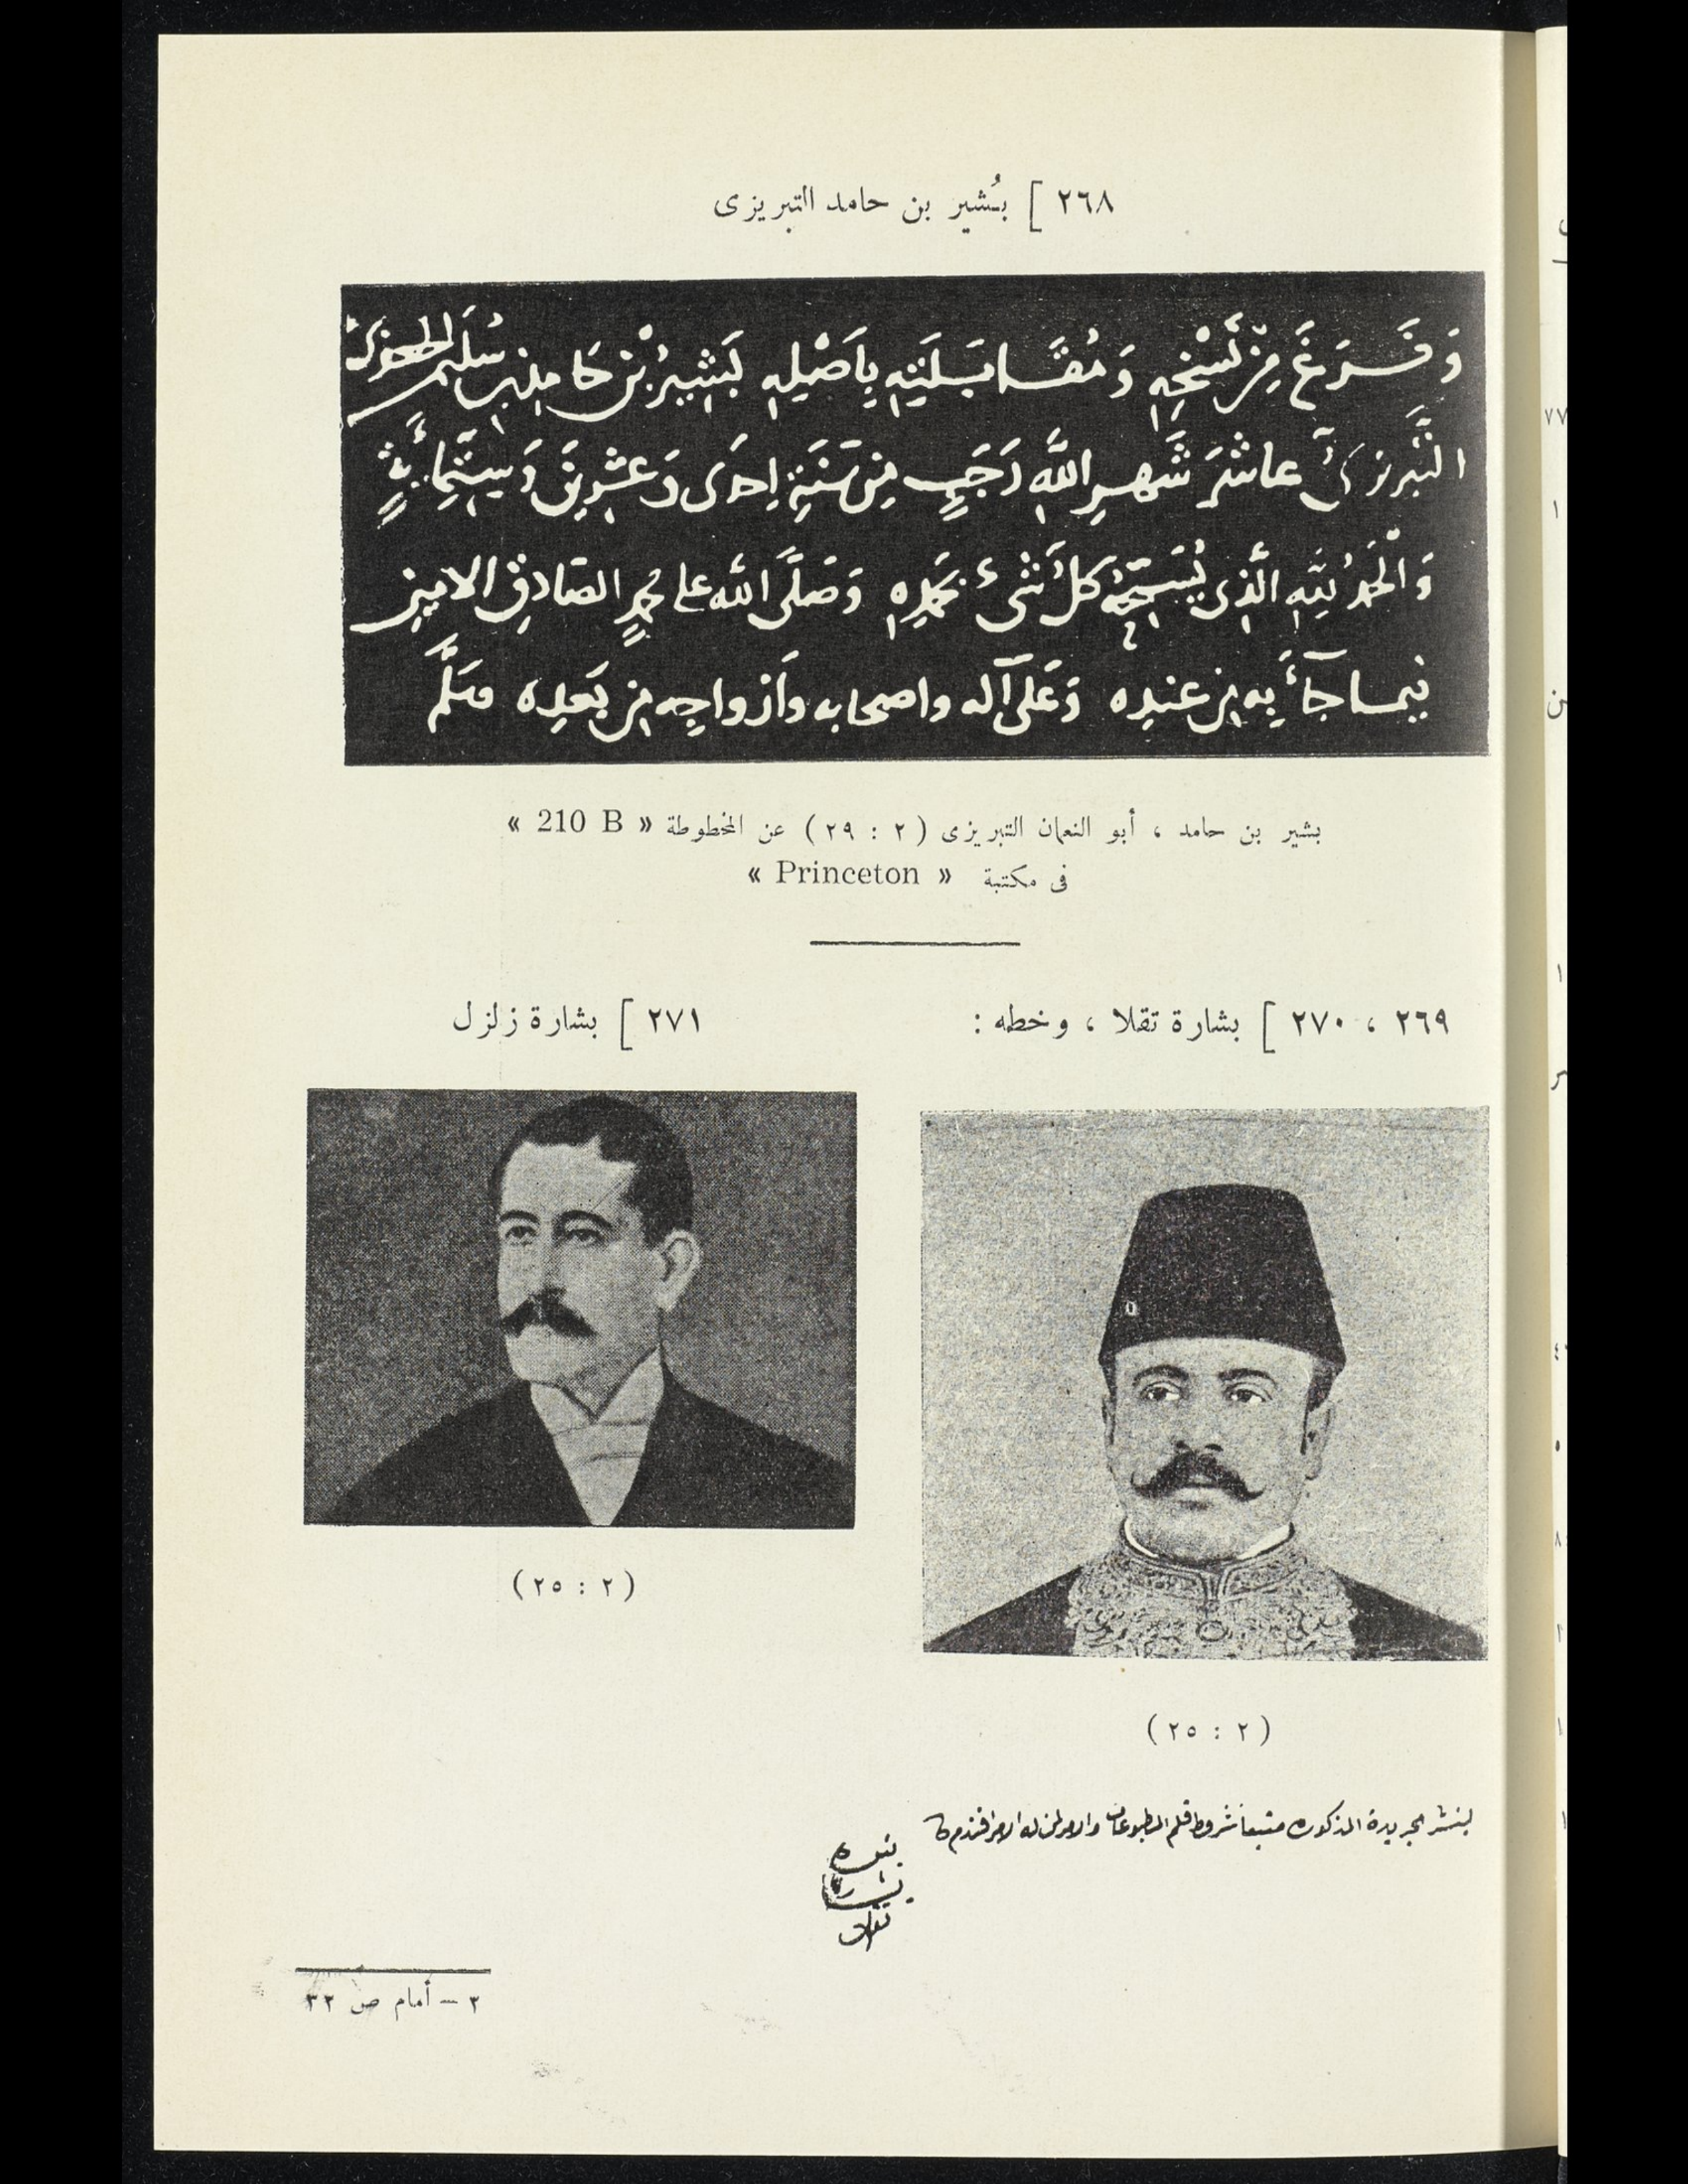 ٢٦٨ [ بُشير بن حامد التبريزى
وَفَرَغَ مِنْ نَسْخِهِ وَمُقَابَلَتِهِ بِاَصْلِهِ بَشِيرُ بْنُ حَامِدِ بْنِ سُلَيْمٰنَ
التَّبْرِيزِىُّ عاشرَ شَهرِ اللهِ رَجَبٍ مِن سَنَةِ اِحدَى وَعشرِينَ وَسِتِّمائَةٍ
وَالحَمدُ لِلّٰهِ الَّذِى يُسَبِّحُ كلُّ شَىْءٍ بِحَمْدِهِ وَصَلَّى الله على محمدٍ الصَّادِقِ الامِين
فيما جَآءَ بِهِ مِن عندِه وَعَلَى آله واصحابه وَاَزواجِه مِن بَعدِه وَسَلَّم
بشير بن حامد ، أبو النعمان التبريزى ( ٢ : ٢٩ ) عن المخطوطة « 210 B »
فى مكتبة « Princeton »
٢٦٩ ، ٢٧٠ [ بشارة تقلا ، وخطه :
٢٧١ [ بشارة زلزل
( ٢ : ٢٥ )
( ٢ : ٢٥ )
بنشر الجريدة المذكوره متبعا شروط قلم المطبوعات والامر لمن له الامر افندم
بنده
بشاره
تقلا
٣ – أمام ص ٣٢